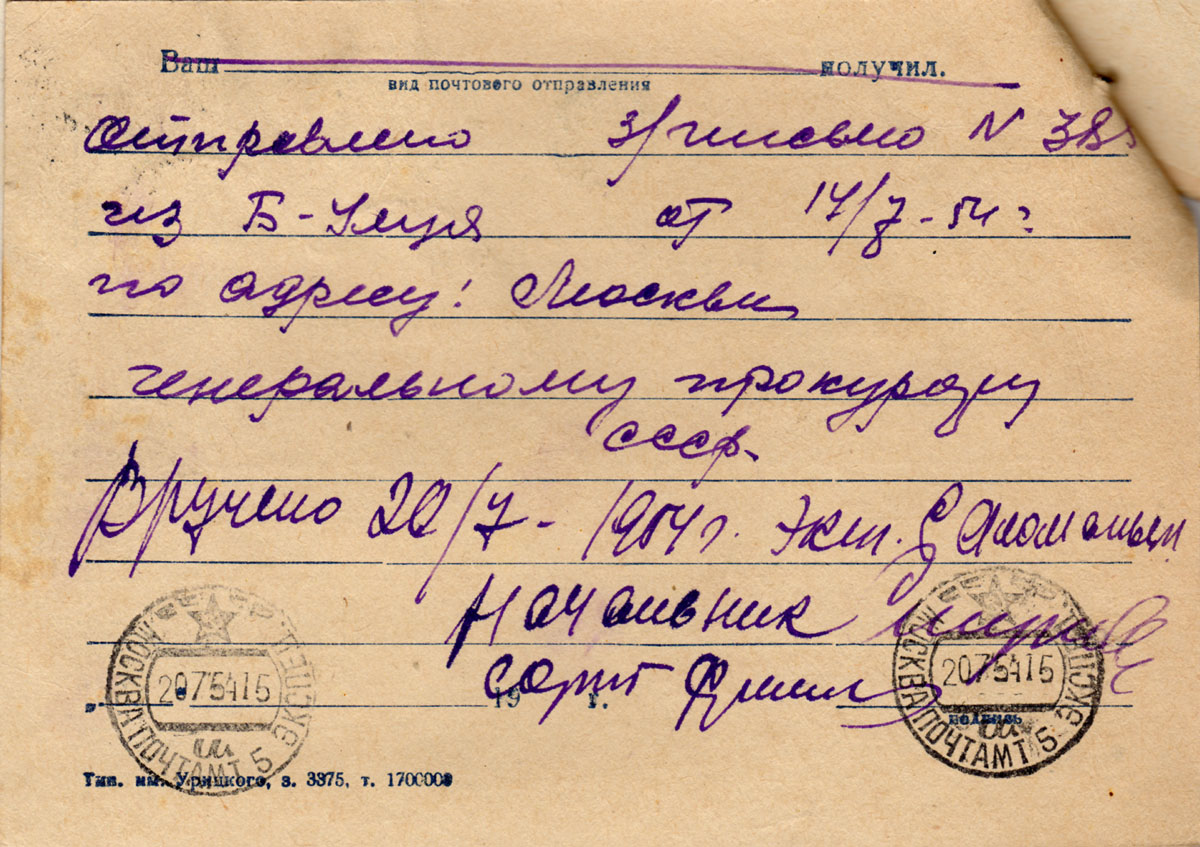 Ваш получил.
вид почтового отправления
Отправлено з/письмо N
из Б-Улуя от 14/7-54 г
по адресу: Москва
генеральному прокурору
СССР.
Вручено 20/7-1954г. Эксп.
Начальник
сорт
19 г.
подпись
МОСКВА ПОЧТАМТ 5 ЭКСПЕД.
20 7 54 15
МОСКВА ПОЧТАМТ 5 ЭКСПЕД.
20 7 54 15
Тип. им. Урицкого, з. 3375, т. 1700000